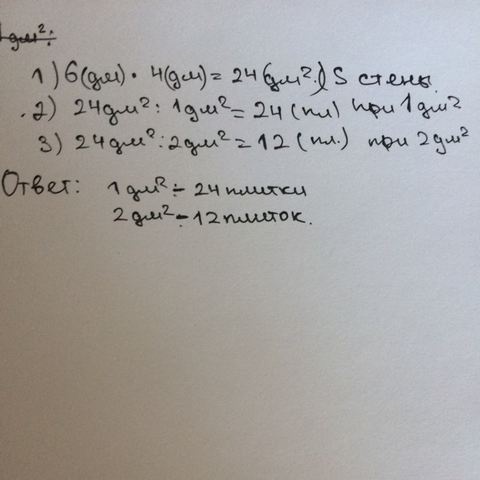 1 дм²:
1) 6(дм) · 4(дм) = 24(дм²) S стены.
2) 24дм² : 1дм² = 24 (пл) при 1дм²
3) 24дм² : 2дм² = 12 (пл.) при 2дм²
Ответ: 1дм² - 24 плитки
2дм² - 12 плиток.